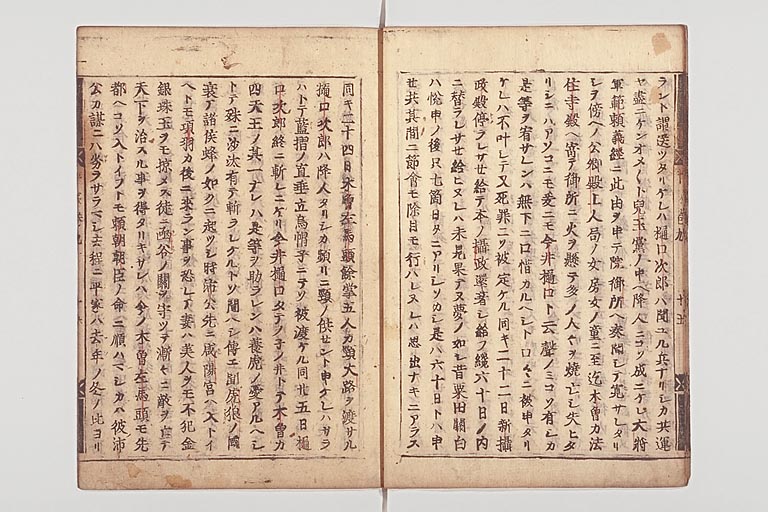 ラント謂送ツタリケレハ樋口次郎ハ聞ユル兵ナリシカ共運
ヤ盡ニケンオメ〱ト兒玉黨ノ中ヘ降人ニコソ成ニケレ大將
軍範頼義經ニ此由ヲ申テ院御所ヘ奏聞シテ宥サレタリ
シヲ傍ヘノ公卿殿上人局ノ女房女ノ童ニ至迄木曾カ法
住寺殿ヘ寄テ御所ニ火ヲ懸テ多ノ人々ヲ燒亡シ失ヒタ
リシニハアソコニモ爰ニモ今井樋口ト云聲ノミコソ有シカ
是等ヲ宥サレンハ無下ニ口惜カルヘシト口々ニ被申タリ
ケレハ不叶シテ又死罪ニソ被定ケル同キ二十二日新攝
政殿停ラレサせ給テ本ノ攝政還著シ給フ纔六十日ノ内
ニ替ラレサせ給ヒヌレハ未見果テヌ夢ノ如シ昔粟田關白
ハ悅申ノ後只七箇日タニアリシソカシ是ハ六十日トハ申
せ共其間ニ節會モ除目モ行ハレヌレハ思出ナキニアラス
同キ二十四日木曾左馬頭餘黨五人カ頸大路ヲ渡サル
樋口次郎ハ降人タリシカ頻リニ頸ノ供せント申ケレハサラ
ハトテ藍摺ノ直垂立烏帽子ニテソ被渡ケル同廿五日樋
口次郎終ニ斬レニケリ今井樋口タテノ子ノ井トテ木曾カ
四天王ノ其一ナレハ是等ヲ助ラレンハ養虎ノ愛アルヘシ
トテ殊ニ沙汰有テ斬ラレケルトソ聞ヘシ傳ヱ聞虎狼ノ國
衰ヘ諸侯蜂ノ如クニ起ツシ時沛公先ニ咸陽宮ヘ入トイ
ヘトモ項羽カ後ニ來ラン事ヲ恐レテ妻ハ美人ヲモ不犯金
銀珠玉ヲモ掠メス徒ニ函谷ノ關ヲ守ツテ漸々ニ敵ヲ亡テ
天下ヲ治スル事ヲ得タリキサレハ今ノ木曾左馬頭モ先
都ヘコソ入トイフトモ頼朝朝臣ノ命ニ順ハマシカハ彼沛
公カ謀ニハ劣ラサラマシ去程ニ平家ハ去年ノ冬ノ比ヨリ